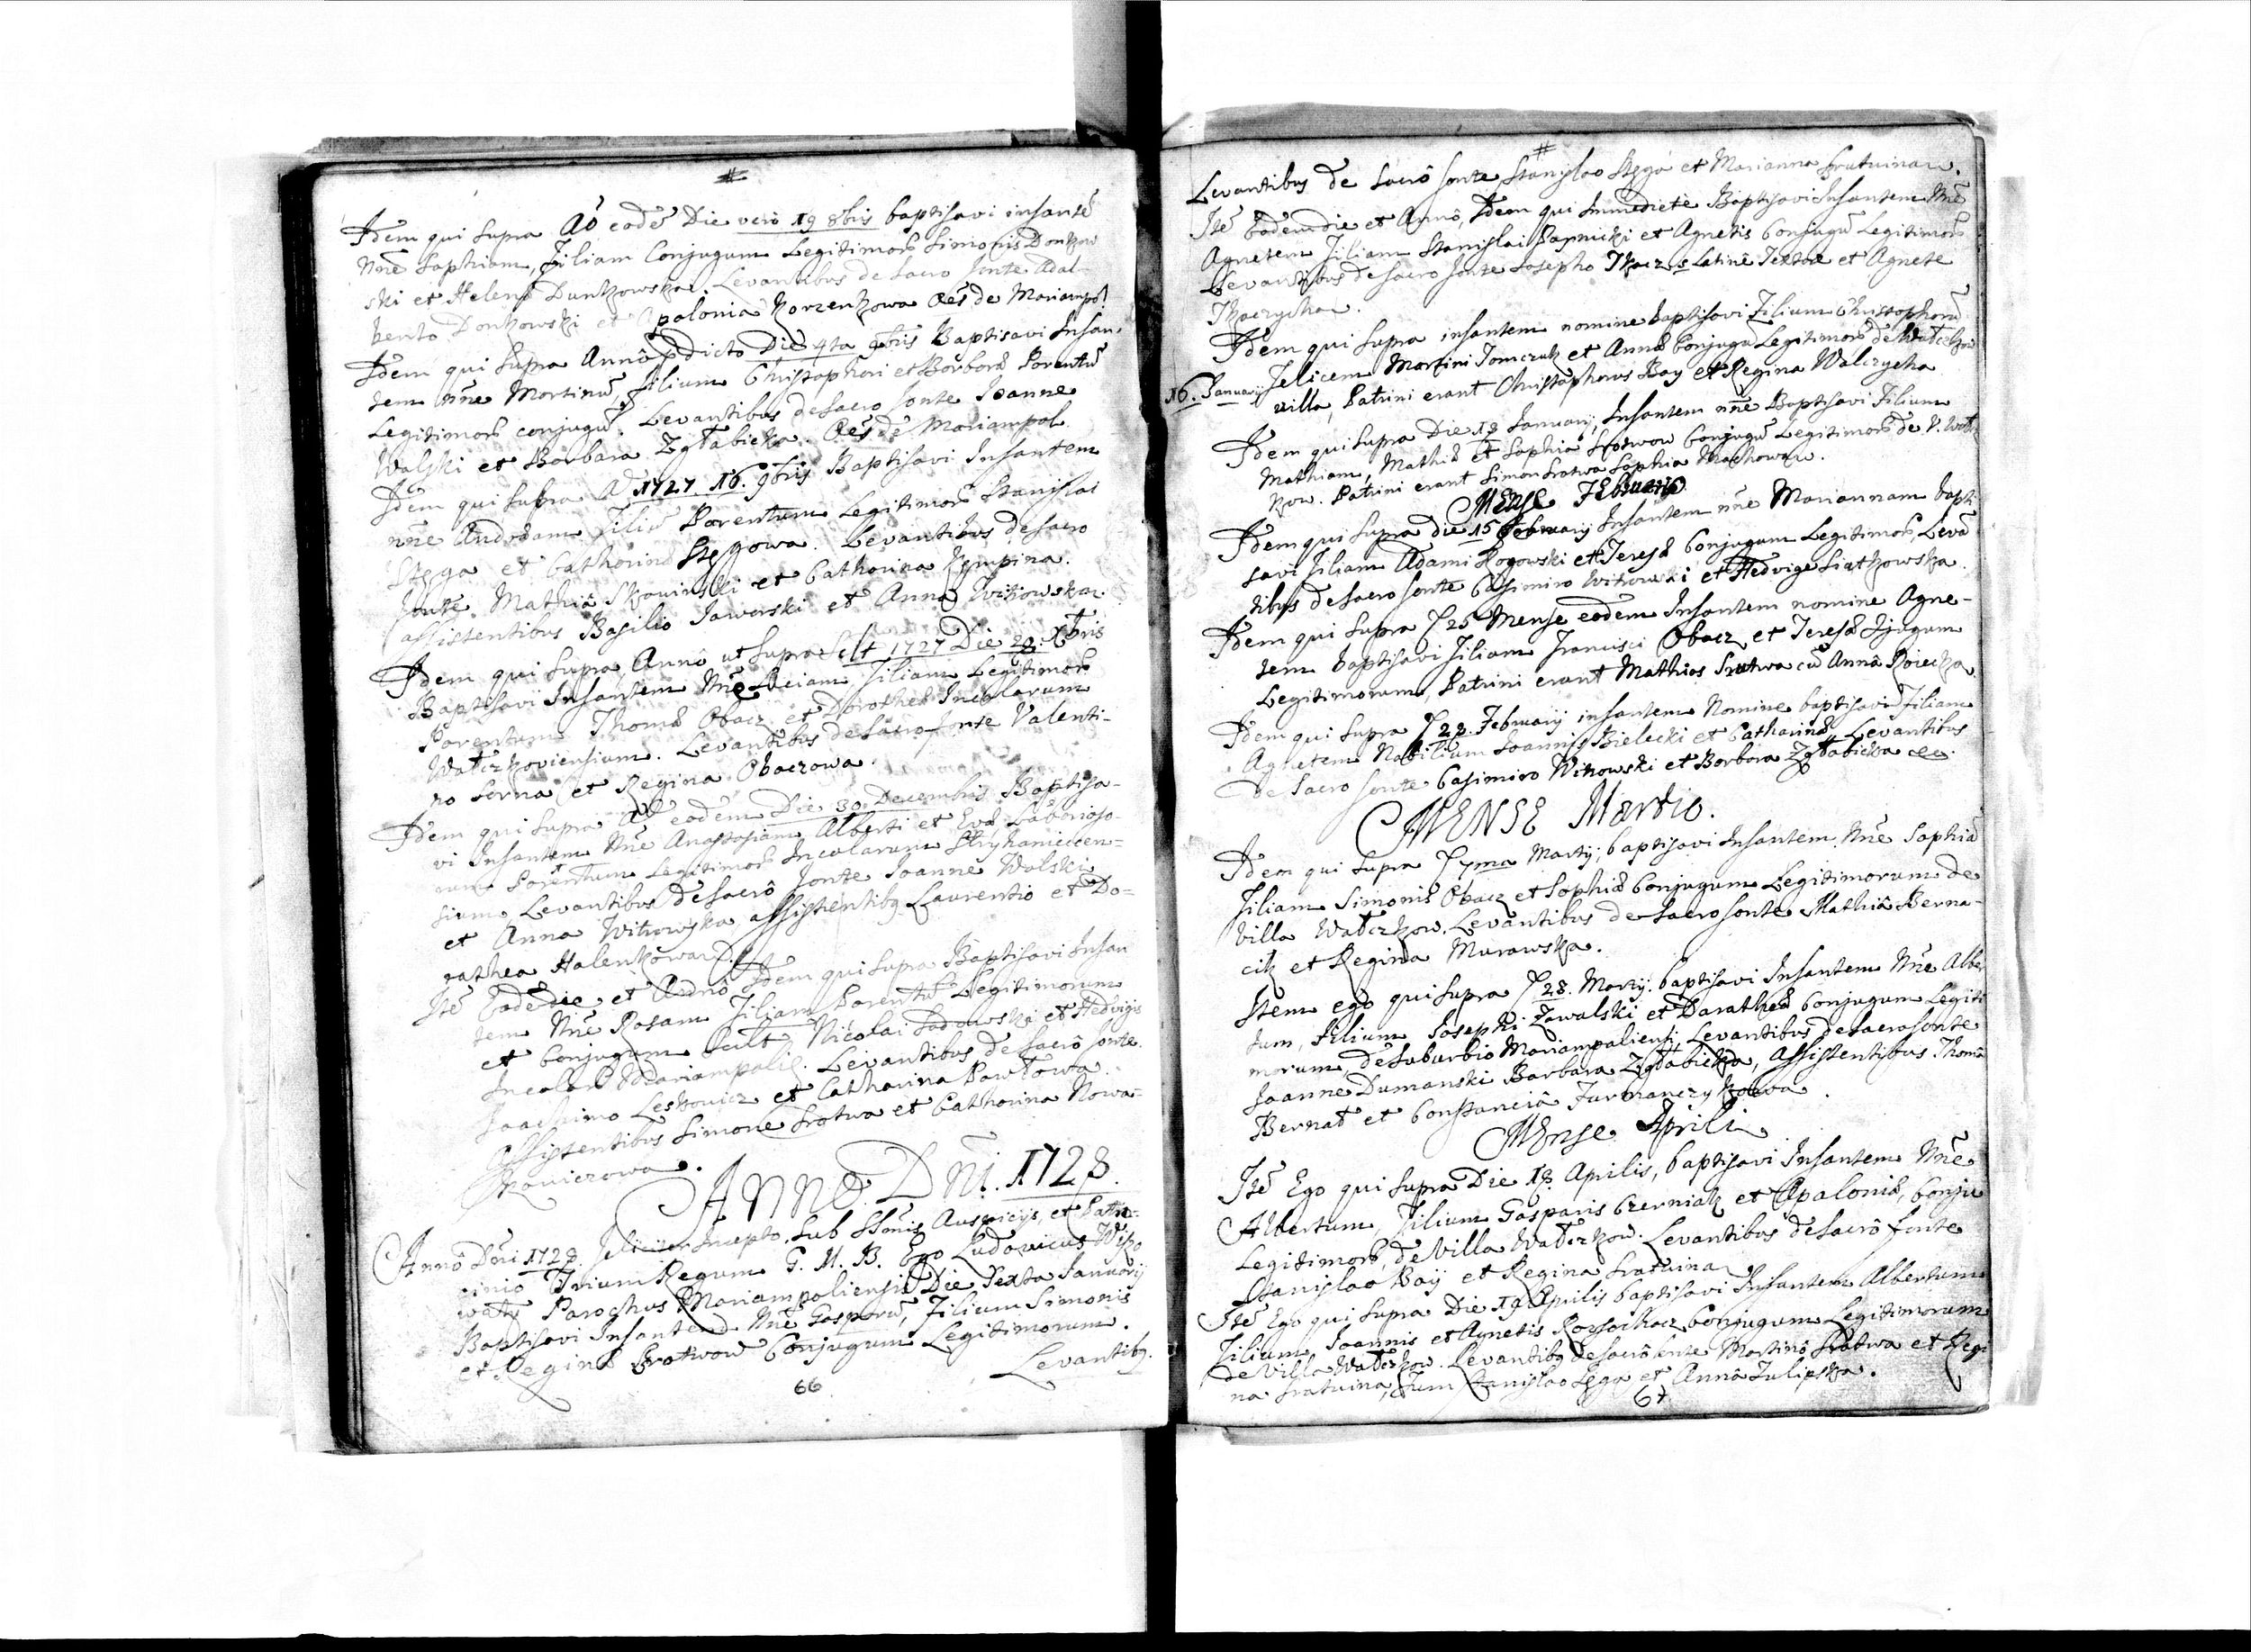 #
Idem qui supra Aō eodē Die vero 19 8bris baptisavi infantē
Nn̄e Sophiam, Filiam Conjugum Legitimor Simonis Donkow
ski et Helenæ Dunkowska. Levantibus de Sacro fonte Adal-
berto Donkowski et Apolonia Korzenkowa Oēs de Mariampol
Idem qui supra Annô pdicto Die 9bris Baptisavi Infan-
tem nn̄e Martinū, filium Christophori et Barbaræ Parentū
Legitimor conjugū. Levantibus de Sacro fonte Joanne
Walski et Barbara Zgłabicka. Oēs de Mariampol
Idem qui supra Aō 1727. 16. 9bris Baptisavi Infantem
nn̄e Andream Filiū Parentum Legitimor Stanislai
Stęga et Catharinæ Stęgowa. Levantibus de Sacro
fonte. Mathiâ Skowinski et Catharina Kempina.
assistentibus Basilio Jaworski et Anna Witkowska
Idem qui supra Annô ut supra scilt 1727 Die 28. Xbris
Baptisavi Infantem Nn̄e Luciam filiam Legitimor
Parentum Thomæ Obacz et Dorotheæ Incolarum
Wałczkoviensium. Levantibus de Sacro fonte Valenti-
no Serna et Regina Obaczowa.
Idem qui supra Aō eodem Die 30. Decembris Baptisa-
vi Infantem Nn̄e Anastasiam Alberti et Evæ, Laborioso-
rum Parentum Legitimor Incolarum Stryhaniecen-
sium. Levantibus de Sacrô fonte Joanne Wolski
et Anna Witkowska assistentibq Laurentio et Do-
rathea Halenkowa
Itē Eodē die et Annô Idem qui supra Baptisavi Infan
tem Nn̄e Rosam Filiam Parentū Legitimorum
et Conjugum scilt Nicolai Sadowski et Hedvigis
Incolar Mariampoliē. Levantibus de Sacrô fonte.
Joachimo Leskowicz et Catharina Pawłowa.
Assistentibus Simone Sratwa et Catharina Nowa-
kowiczowa.
ANNO Dn̄i. 1728.
Annô Dn̄i 1728. feliciter Incepto, sub SSōnis Auspicijs, et Patro-
cinio Trium Regum G. M. B. Ego Ludovicus Wiko
waty Parochus Mariampoliensis Die Sexta Januarij
Baptisavi Infantem Nn̄e Gasparū, Filium Simonis
et Reginæ Sratwow Conjugum Legitimorum.
Levantibq.
66
#
Levantibus de Sacrô fonte Stanislao Stęga et Marianna Sratwina.
Itē Eadem die et Annô, Idem qui immediate Baptisavi Infantem Nn̄e
Agnetem Filiam Stanislai Papnicki et Agnetis Conjugū Legitimor
Levantibus de Sacro fonte Josepho Tkacz s Latinè Textor et Agnete
Tkaczycha.
Idem qui supra infantem nomine baptisavi Filium Christophorū
16. Januarij Felicem Martini Tomczuk et Annæ Conjugū Legitimor de Wałczkow
villa, Patrini erant Christophorus Bay et Regina Walczycha
Idem qui supra Die 18 Januarij, Infantem nn̄e Baptisavi Filium
Mathiam, Mathiæ et Sophiæ Srotwow Conjugū Legitimor de V. Wałcz
kow. Patrini erant Simon Sratwa Sophia Machowa.
MENSE Februario
Idem qui supra die 15 Februarij Infantem nn̄e Mariannam bapti-
savi Filiam Adami Rogowski et Teresæ Conjugum Legitimor, Levā
tibus de Sacro fonte Casimiro Witkowski et Hedvige Siatkowska.
Idem qui supra 25 Mense eodem Infantem nomine Agne-
tem baptisavi Filiam Francisci Obacz et Teresæ Conjugum
Legitimorum, Patrini erant Mathias Sratwa cū Annâ Koiecka
Idem qui supra 28. Februarij infantem Nomine baptisavi Filiam
Agnetem Nobilium Joannis Bielecki et Catharinæ Levantibus
de Sacro fonte Casimiro Witkowski et Barbara Zgłabicka
MENSE Martio.
Idem qui supra 7ma Martij, baptisavi Infantem Nn̄e Sophiā
Filiam Simonis Obacz et Sophiæ Conjugum Legitimorum de
Villa Wałczkow. Levantibus de Sacro fonte Mathiâ Berna-
cik et Regina Murawska.
Item ego qui supra 28. Martij. baptisavi Infantem Nn̄e Alber
tum, filium Josephi Zawalski et Daratheæ Conjugum Legiti
morum, de Suburbio Mariampoliensi, Levantibus de Sacro fonte
Joanne Dumanski Barbara Zgłabicka, Assistentibus Thomâ
Bernat et Constanciâ Furmanczykowa.
MENSE Aprili
Itē Ego qui supra Die 18. Aprilis, baptisavi Infantem Nn̄e
Albertum, Filium Gasparis Czerniak et Apaloniæ, Conju
Legitimor, de Villa Wałczkow. Levantibus de Sacrô fonte
Stanislao Baij et Regina Sratwina
Itē Ego qui supra Die 19 Aprilis baptisavi Infantem Albertum
Filium, Joannis et Agnetis Rozsochacz Conjugum Legitimorum
de Villa Wałczkow. Levantibq de Sacrô fonte Martinô Sratwa et Regi
na Sratwina, Tum Stanislao Sęga et Annâ Tulipska.
67